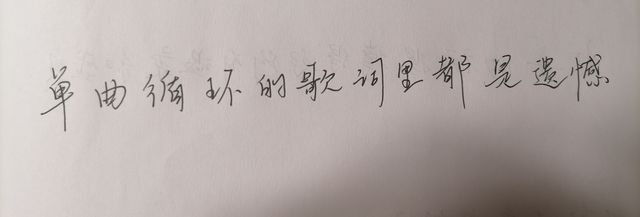 单曲循环的歌词里都是遗憾